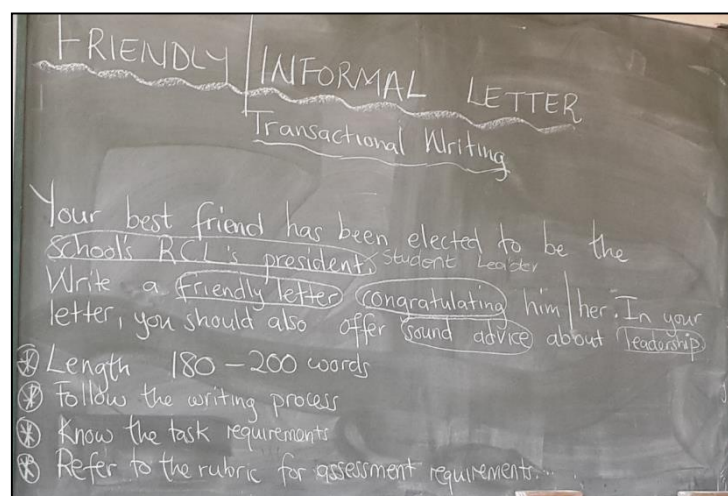 FRIENDLY | INFORMAL LETTER
Transactional Writing
Your best friend has been elected to be the
school's RCL's president. / Student Leader
Write a friendly letter congratulating him / her. In your
letter, you should also offer sound advice about leadership
* Length 180 – 200 words
* Follow the writing process
* Know the task requirements
* Refer to the rubric for assessment requirements...